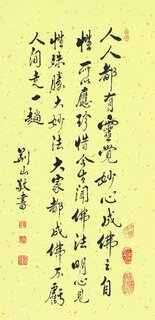 人人都有靈覺妙心成佛之自
性可以應珍惜今生聞佛法明心見
性殊勝大妙法大家都成佛不虧
人间走一趟
劉山敬書